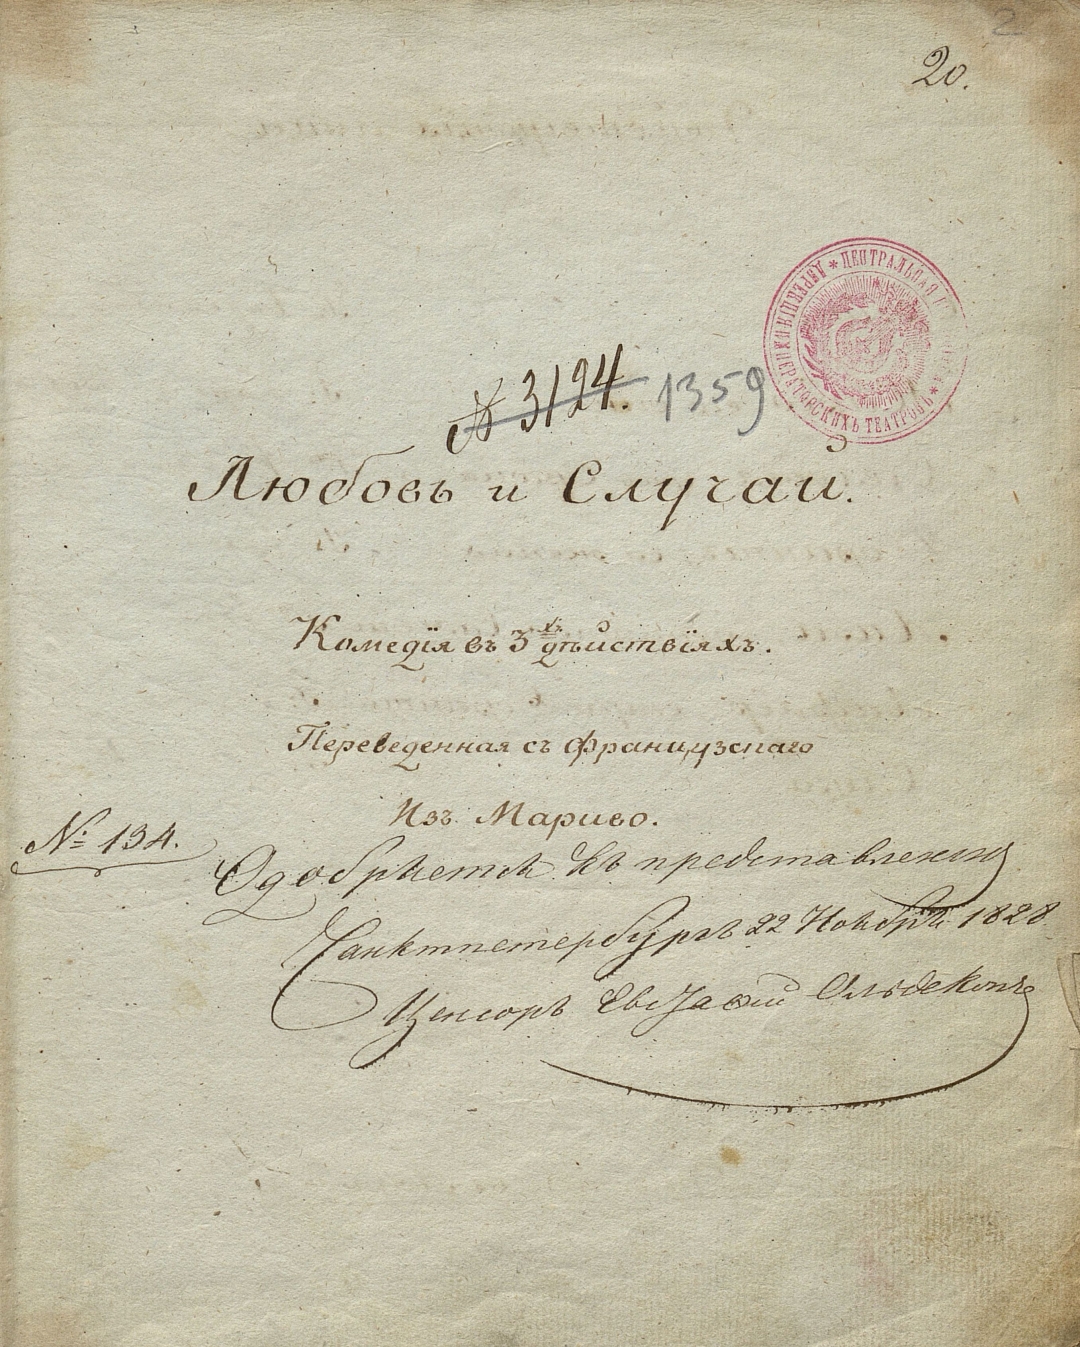 2
20.
ЦЕНТРАЛЬНАЯ
ТЕАТРОВЪ
№ 3124. 1359
Любовь и Случай.
Комедія въ 3хъ дѣйствіяхъ.
Переведенная съ французскаго
Изъ Мариво.
№ 134.
Одобряется къ представленію
Санктпетербургъ 22 Ноября 1828
Ценсоръ Евстафій Ольдекопъ